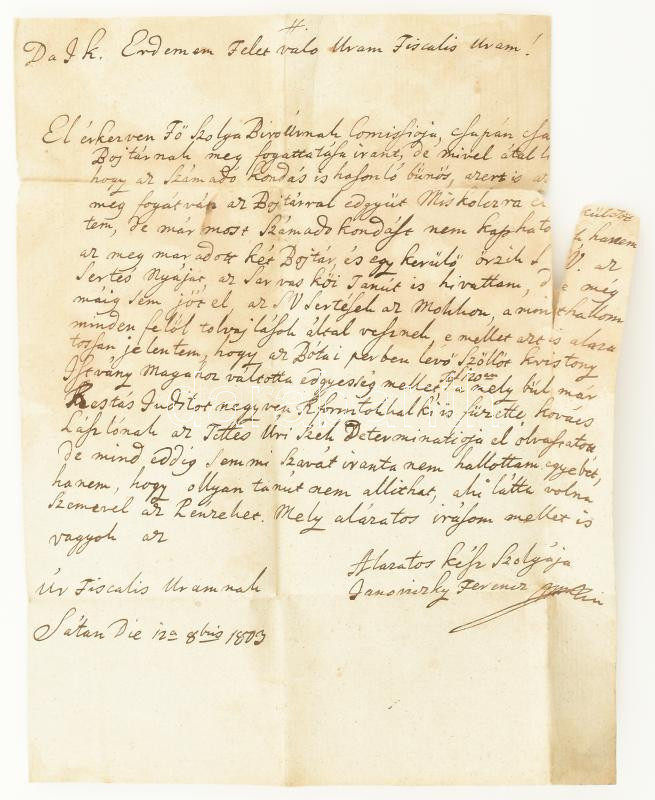 Erdemem Felet valo Uram Fiscalis Uram!
El érkerven Fő Szolga Biró Úrnak Comissioja, csupán csa
Bojtárnak meg fogattatása iránt, de mivel átal l
hogy az Számadó Kondás is hasonló bűnös, azert is az
meg fogatván az Bojtárral edgyüt Miskolczra
külstö
tem, de már most Számadó kondást nem kaphato
k hanem
az meg maradott két Bojtár, és egy kerülő örzik
V. az
Sertés Nyáját, az Sarvas kői Tanút is hivattam, de meg
máig sem jött el az SV Sertések az Mokkon, a mont hallom
minden felől tolvajlások által vesznek, e mellet azt is alaza
tossan jelentem, hogy az Bótai perben levő Szöllöt kristony
István Magához váltotta edgyesség mellet, a mely bül már
Restás Juditot negyven Rforintokkal ki is fizette, kovács
Lászlónak az Tettes Uri Szék Determinatioja el olvastatott,
de mind eddig semmi szavát iranta nem hallottam egyebét,
hanem, hogy ollyan tanút nem allithat, aki látta volna
Szemevel az Pénzeket. Mely alázatos irásom mellet is
vagyok az
Úr Fiscalis Uramnak
Alazatos kész Szolgája
Janoviczky Ferencz
Sátan Die 12a 8bris 1803